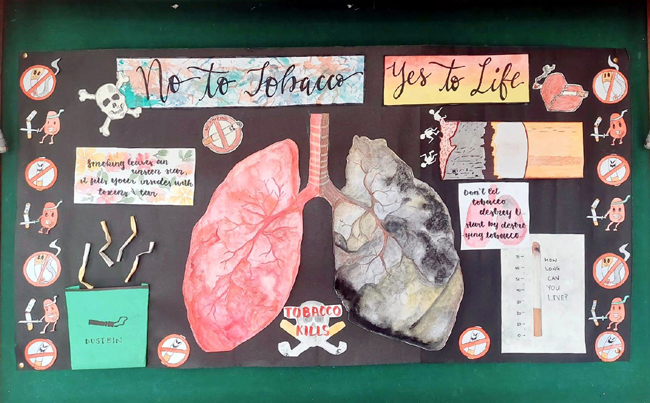 No to Tobacco
Yes to Life
Smoking leaves an
unseen scar,
it fills your insides with
toxins & tar
Don't let
tobacco
destroy U
start by destro
ying tobacco.
HOW
LONG
CAN
YOU
LIVE?
TOBACCO
KILLS
DUSTBIN